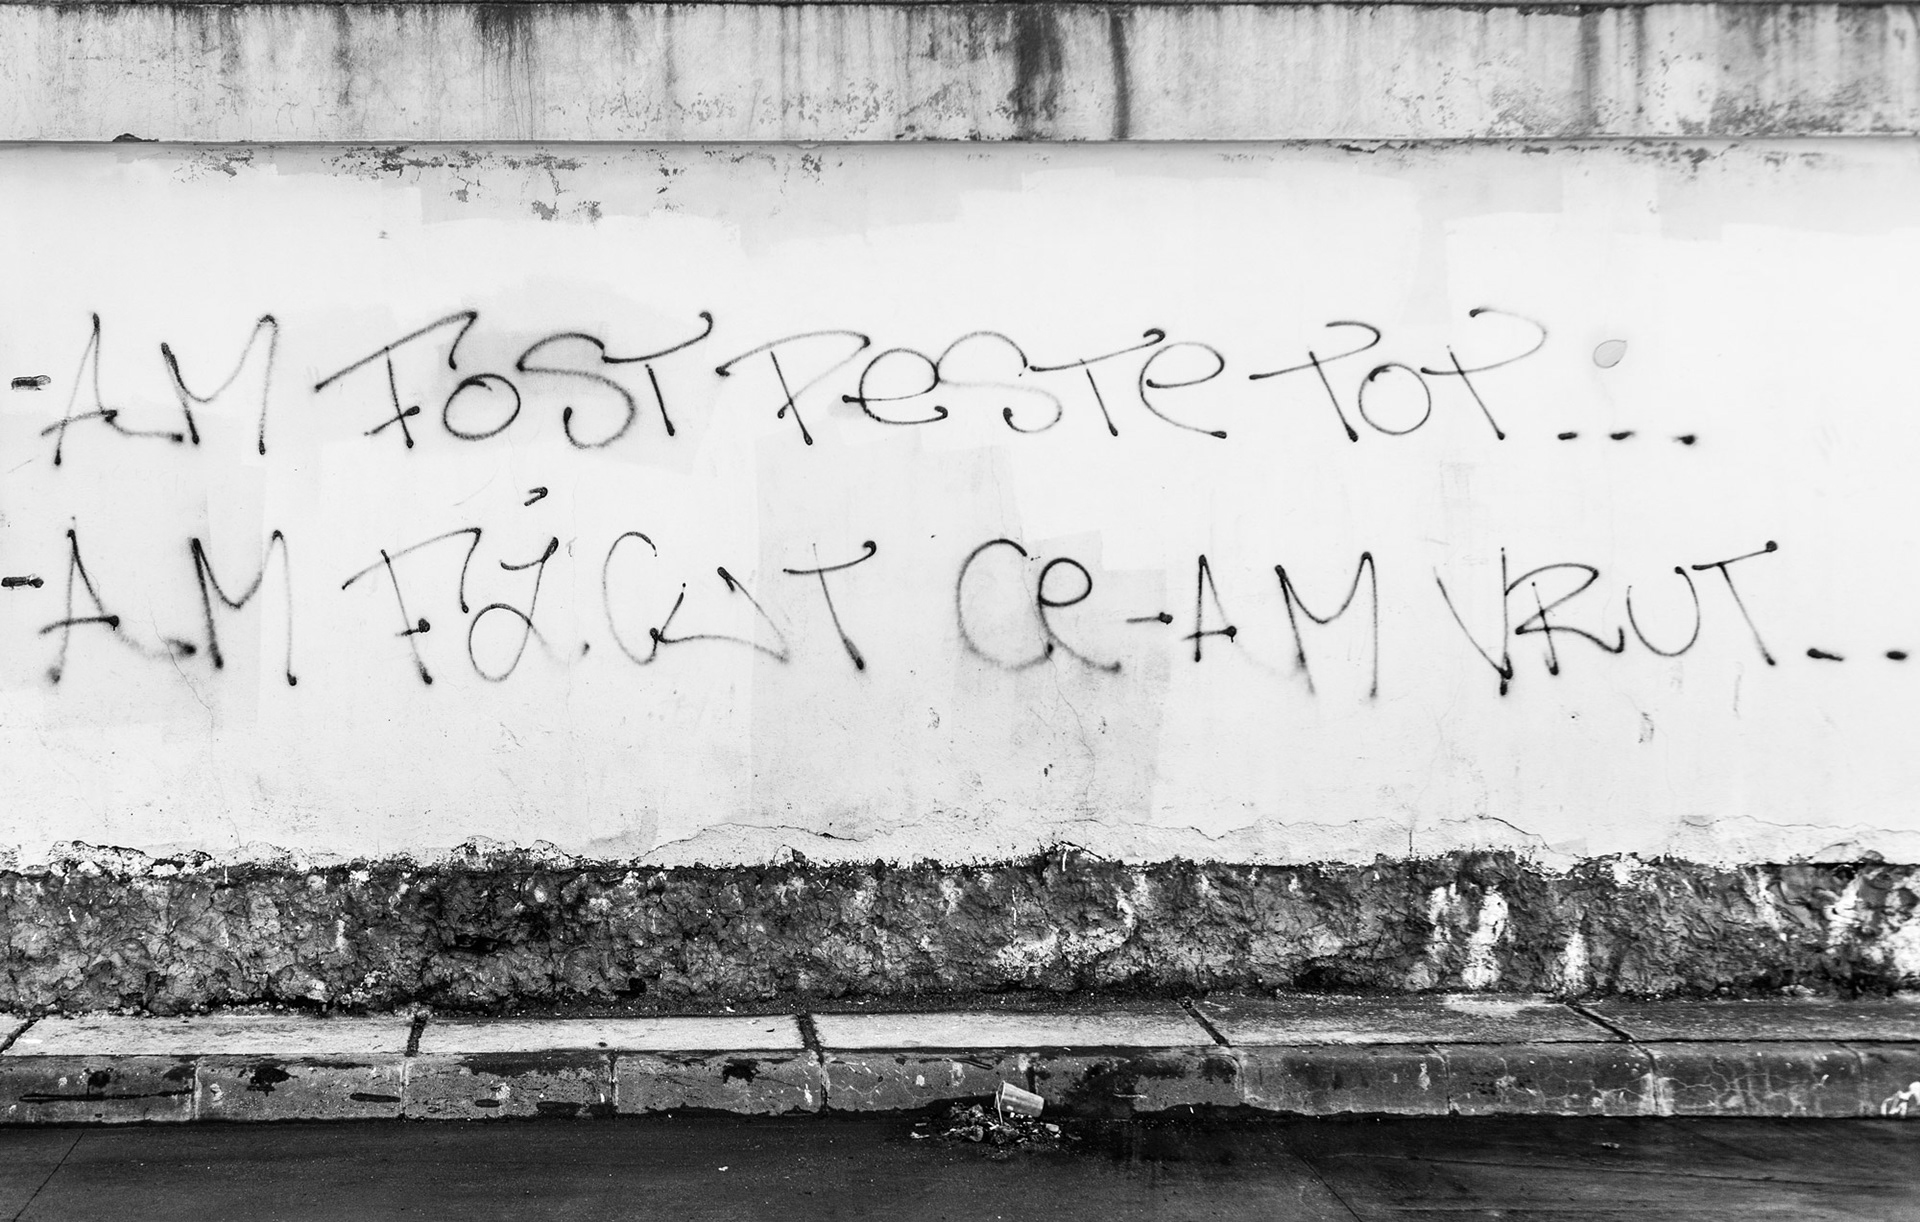 -AM FOST PESTE TOT...
-AM FĂCUT CE-AM VRUT...